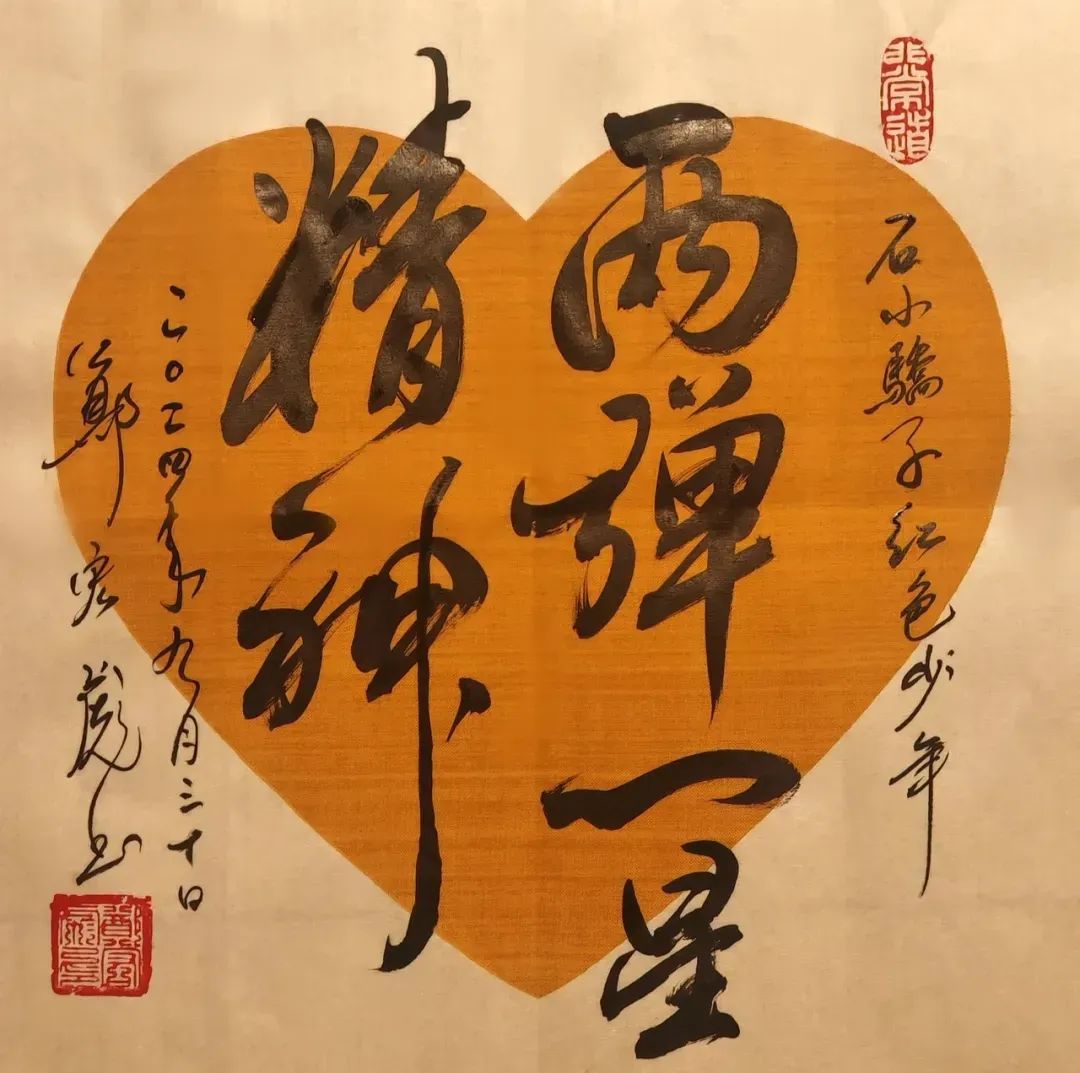 非常道
石小驕子红色少年
两弹一星
精神
二〇二四年九月三十日
鄭宏彪书